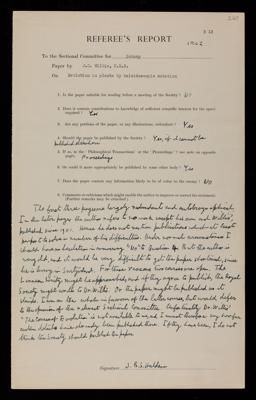 REFEREE'S REPORT
1942
To the Sectional Committee for Botany
Paper by J.C. Willis, F.R.S.
On Evolution in plants by kaleidoscopic mutation
1. Is the paper suitable for reading before a meeting of the Society? No
2. Does it contain contributions to knowledge of sufficient scientific interest for the space required? Yes
3. Are any portions of the paper, or any illustrations, redundant? Yes
4. Should the paper be published by the Society? Yes, if it cannot be published elsewhere
5. If so, in the 'Philosophical Transactions' or the 'Proceedings'? see note on opposite page. Proceedings
6. Or could it more appropriately be published by some other body? Yes
7. Does the paper contain any information likely to be of value to the enemy? No
8. Comments or criticisms which might enable the author to improve or correct his statement. (Further remarks may be attached.)
The first three pages are largely redundant and autobiographical.
In the later pages the author refers to no work except his own and Willis',
published since 1901. Hence he does not mention publications which at least
purport to solve a number of his difficulties. Under normal circumstances I
should have no hesitation in answering "No" to Question 4. But the author is
very old, and it would be very difficult to get the paper shortened, since
he is living in Switzerland. For these reasons two courses are open. The
Linnean Society might be approached, and if they agree to publish, the Royal
Society might write to Dr. Willis. Or the paper might be published as it
stands. I am on the whole in favour of the latter course, but would defer
to the opinion of the Sectional Committee. Unfortunately Dr. Willis'
"The Course of Evolution" is not available to me, and I must therefore
have already been published there. If they have been, I do not
think the Society should publish the paper.
Signature J.B.S. Haldane